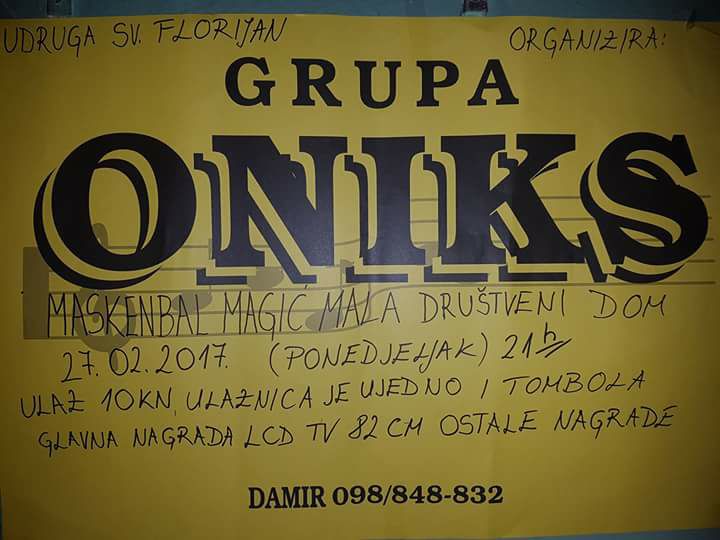 UDRUGA SV. FLORIJAN ORGANIZIRA:
GRUPA
ONIKS
MASKENBAL MAGIĆ MALA DRUŠTVENI DOM
27.02.2017. (PONEDJELJAK) 21h
ULAZ 10KN, ULAZNICA JE UJEDNO I TOMBOLA
GLAVNA NAGRADA LCD TV 82CM OSTALE NAGRADE
DAMIR 098/848-832